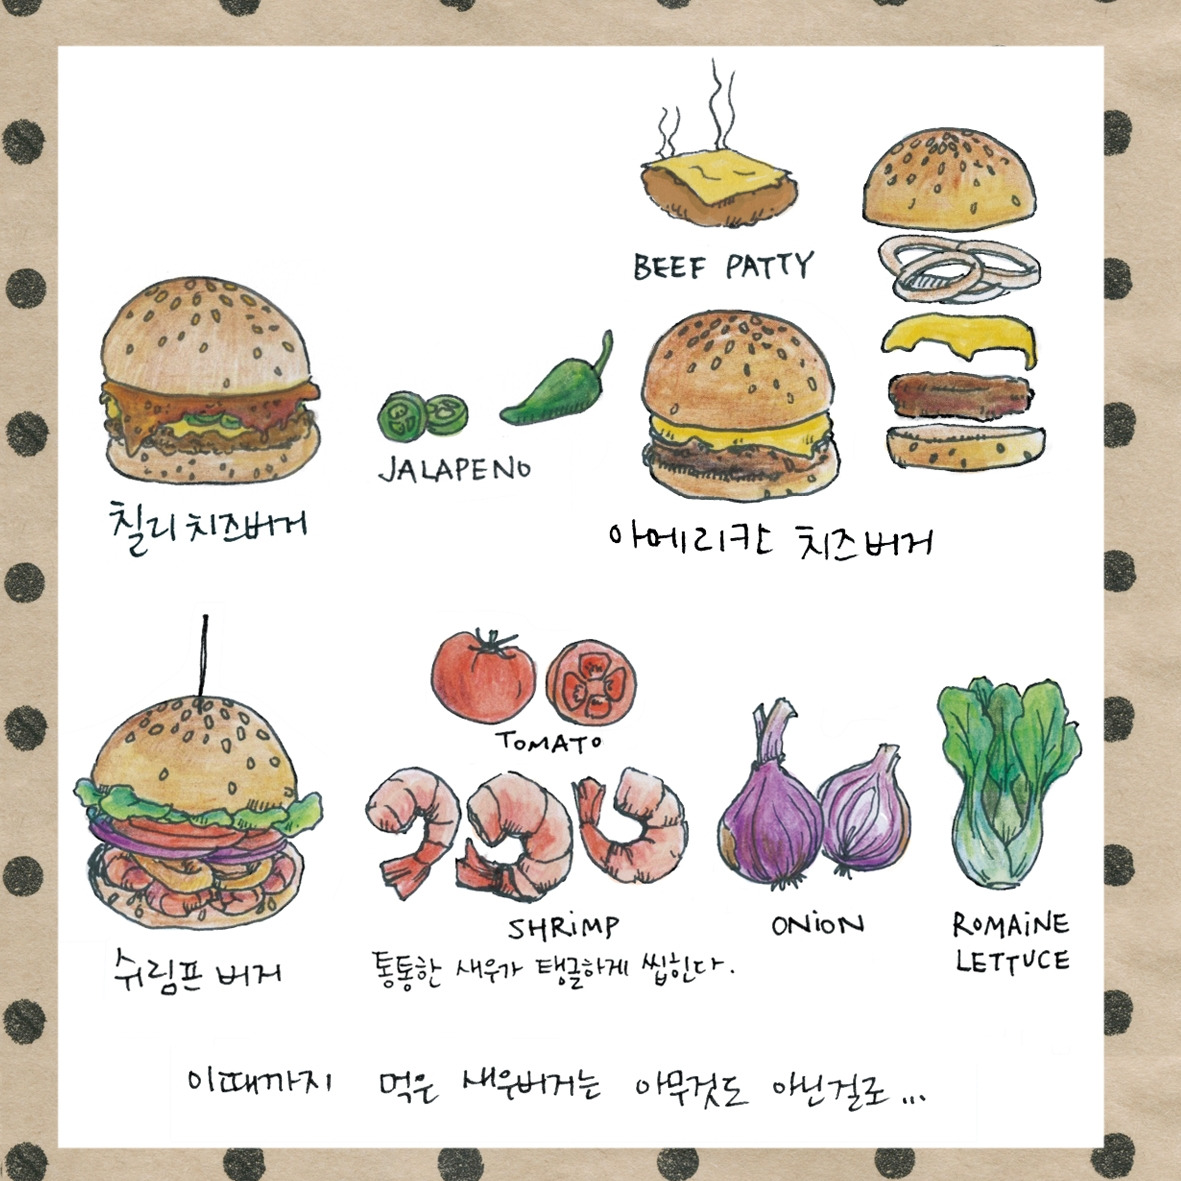 BEEF PATTY
JALAPENO
칠리 치즈버거
아메리칸 치즈버거
TOMATO
SHRiMP
ONiON
ROMAiNE
LETTUCE
쉬림프 버거
통통한 새우가 탱글하게 씹힌다.
이때까지 먹은 새우버거는 아무것도 아닌걸로...